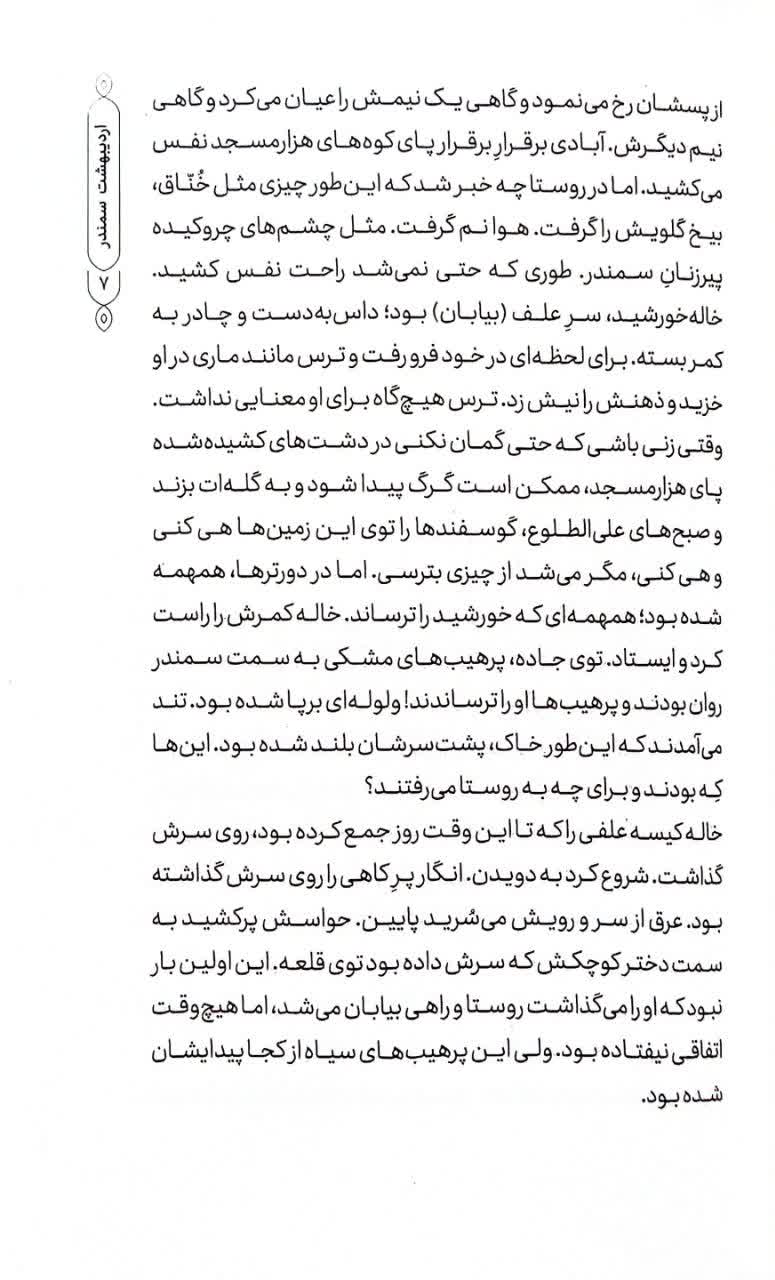 از پسشان رخ می‌نمود و گاهی یک نیمش را عیان می‌کرد و گاهی
نیم دیگرش. آبادی برقرارِ برقرار پای کوه‌های هزارمسجد نفس
می‌کشید. اما در روستا چه خبر شد که این‌طور چیزی مثل خُنّاق،
بیخ گلویش را گرفت. هوا نم گرفت. مثل چشم‌های چروکیده
پیرزنانِ سمندر. طوری که حتی نمی‌شد راحت نفس کشید.
خاله‌خورشید، سرِ علف (بیابان) بود؛ داس‌به‌دست و چادر به
کمر بسته. برای لحظه‌ای در خود فرو رفت و ترس مانند ماری در او
خزید و ذهنش را نیش زد. ترس هیچ‌گاه برای او معنایی نداشت.
وقتی زنی باشی که حتی گمان نکنی در دشت‌های کشیده‌شده
پای هزارمسجد، ممکن است گرگ پیدا شود و به گله‌ات بزند
و صبح‌های علی‌الطلوع، گوسفندها را توی این زمین‌ها هی کنی
و هی کنی، مگر می‌شد از چیزی بترسی. اما در دورترها، همهمه
شده بود؛ همهمه‌ای که خورشید را ترساند. خاله کمرش را راست
کرد و ایستاد. توی جاده، پرهیب‌های مشکی به سمت سمندر
روان بودند و پرهیب‌ها او را ترساندند! ولوله‌ای برپا شده بود. تند
می‌آمدند که این‌طور خاک، پشت‌سرشان بلند شده بود. این‌ها
کِه بودند و برای چه به روستا می‌رفتند؟
خاله کیسه علفی را که تا این وقت روز جمع کرده بود، روی سرش
گذاشت. شروع کرد به دویدن. انگار پرِ کاهی را روی سرش گذاشته
بود. عرق از سر و رویش می‌سُرید پایین. حواسش پرکشید به
سمت دختر کوچکش که سرش داده بود توی قلعه. این اولین بار
نبود که او را می‌گذاشت روستا و راهی بیابان می‌شد، اما هیچ‌وقت
اتفاقی نیفتاده بود. ولی این پرهیب‌های سیاه از کجا پیدایشان
شده بود.
اردیبهشت سمندر
۷